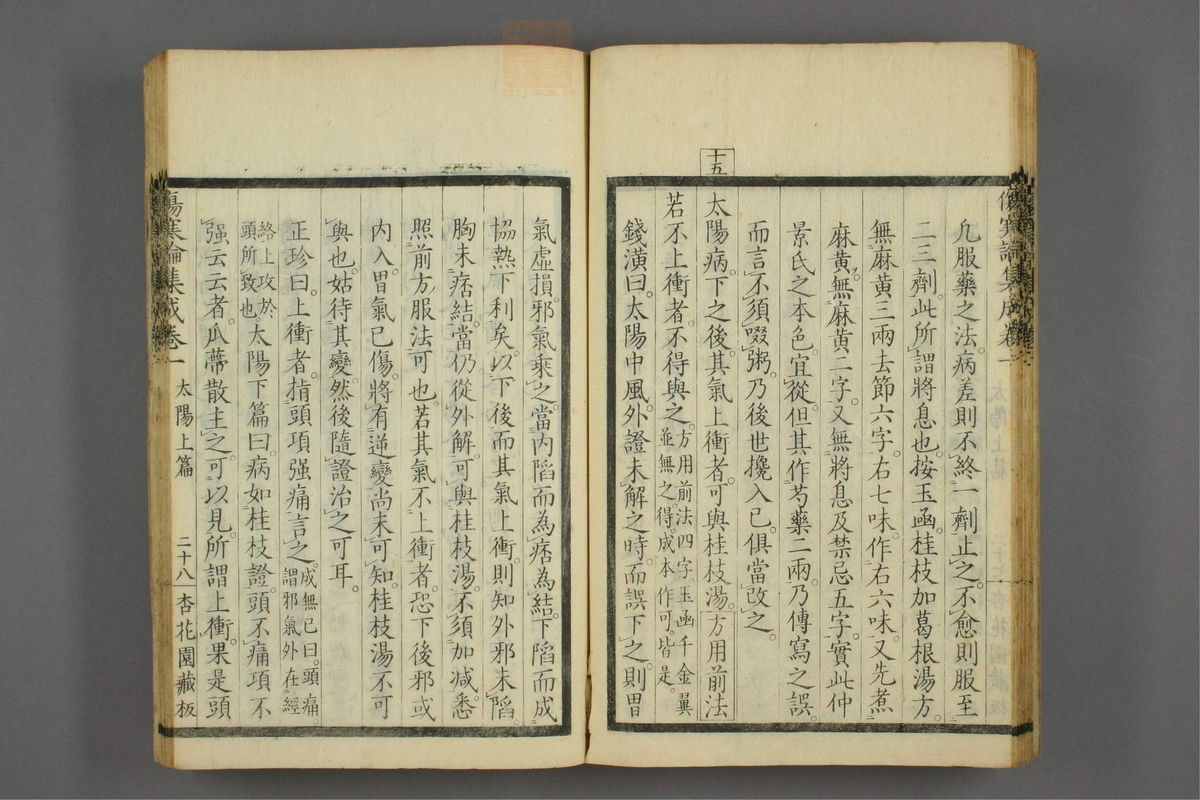 十五
凡服藥之法。病差則不終一劑止之。不愈則服至
二三劑。此所謂將息也。按玉函。桂枝加葛根湯方。
無麻黃三兩去節六字。右七味。作右六味。又先煮
麻黃。無麻黃二字。又無將息及禁忌五字。實此仲
景氏之本色。宜從。但其作芍藥二兩。乃傳寫之誤。
而言不須啜粥。乃後世攙入已。俱當改之。
太陽病。下之後。其氣上衝者。可與桂枝湯。方用前法
若不上衝者。不得與之。方用前法四字。玉函千金翼
並無之。得。成本作可。皆是。
錢潢曰。太陽中風。外證未解之時。而誤下之。則胃
傷寒論集成卷一
氣虛損。邪氣乘之。當內陷而為痞為結。下陷而成
協熱下利矣。以下後而其氣上衝。則知外邪未陷。
胸未痞結。當仍從外解。可與桂枝湯。不須加減。悉
照前方服法可也。若其氣不上衝者。恐下後邪或
內入。胃氣已傷。將有逆變。尚未可知。桂枝湯不可
與也。姑待其變。然後隨證治之可耳。
正珍曰。上衝者。指頭項强痛言之。成無已曰。頭痛。
謂邪氣外在經
絡。上攻於
頭所致也
太陽下篇曰。病如桂枝證。頭不痛。項不
强云云者。瓜蔕散主之。可以見。所謂上衝。果是頭
傷寒論集成卷一 太陽上篇 二十八 杏花園藏板